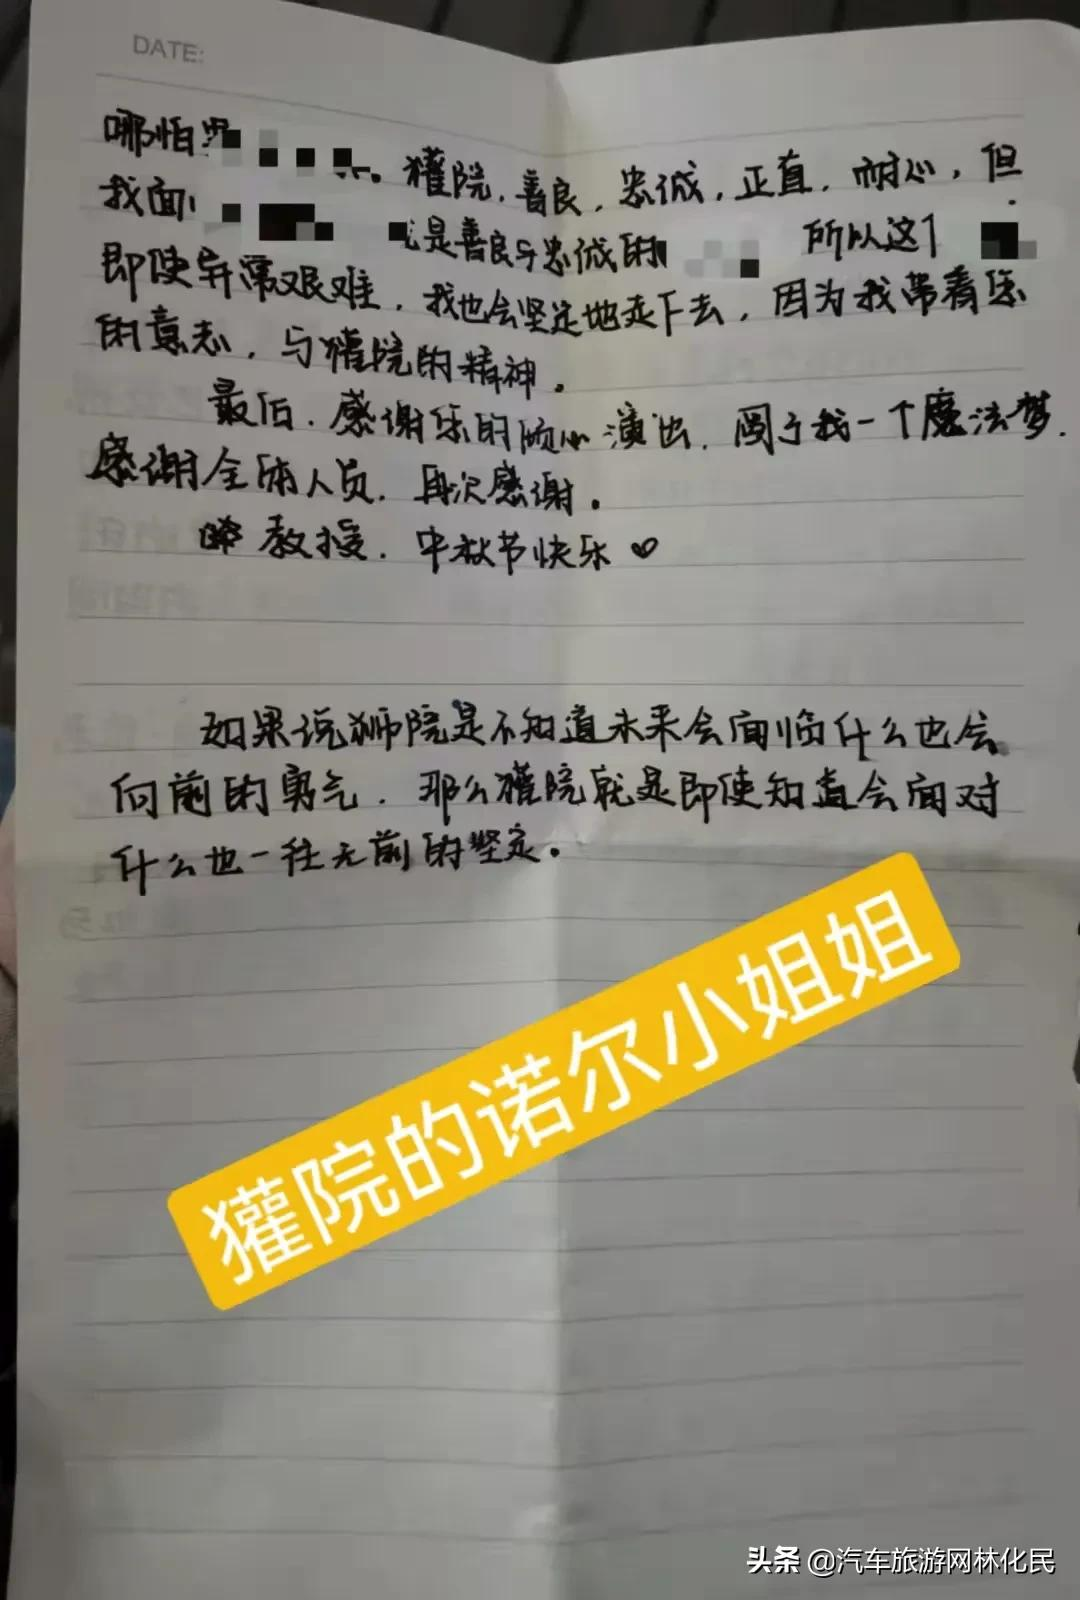 DATE:
哪怕
獾院,善良,忠诚,正直,耐心,但
我面
是善良与忠诚的
所以这个
即使异常艰难,我也会坚定地走下去,因为我带着乐
的意志,与獾院的精神。
最后,感谢乐的倾心演出,圆了我一个魔法梦.
感谢全体人员,再次感谢。
教授,中秋节快乐♡
如果说狮院是不知道未来会面临什么也会
向前的勇气,那么獾院就是即使知道会面对
什么也一往无前的坚定。
獾院的诺尔小姐姐
头条 @汽车旅游网林化民